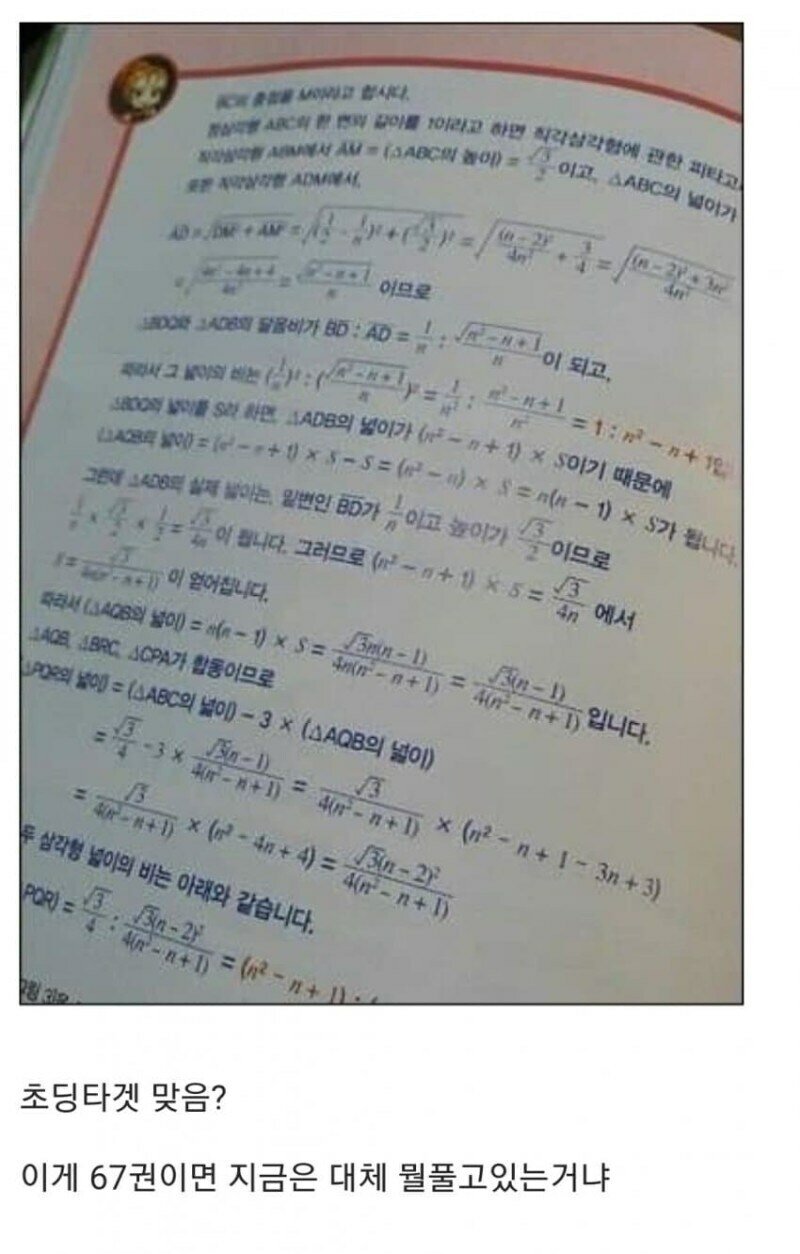 BC의 중점을 M이라고 합시다.
정삼각형 ABC의 한 변의 길이를 1이라고 하면 직각삼각형에 관한 피타고
직각삼각형 ABM에서 AM = (△ABC의 높이) = √3/2 이고, △ABC의 넓이가
또한 직각삼각형 ADM에서,
AD = √(DM² + AM²) = √((1/2 - 1/n)² + (√3/2)²) = √((n-2)²/4n² + 3/4) = √(((n-2)² + 3n²)/4n²)
= √((4n² - 4n + 4)/4n²) = √(n² - n + 1)/n 이므로
△BDQ와 △ADB의 닮음비가 BD : AD = 1/n : √(n² - n + 1)/n 이 되고,
따라서 그 넓이의 비는 (1/n)² : (√(n² - n + 1)/n)² = 1/n² : (n² - n + 1)/n² = 1 : n² - n + 1
△BDQ의 넓이를 S라 하면, △ADB의 넓이가 (n² - n + 1) × S이기 때문에
(△AQB의 넓이) = (n² - n + 1) × S - S = (n² - n) × S = n(n - 1) × S가 됩니다.
그런데 △ADB의 실제 넓이는, 밑변인 BD가 1/n이고 높이가 √3/2 이므로
1/n × √3/2 × 1/2 = √3/4n 이 됩니다. 그러므로 (n² - n + 1) × S = √3/4n 에서
S = √3/4n(n² - n + 1) 이 얻어집니다.
따라서 (△AQB의 넓이) = n(n - 1) × S = √3n(n - 1)/4n(n² - n + 1) = √3(n - 1)/4(n² - n + 1) 입니다.
△AQB, △BRC, △CPA가 합동이므로
△PQR의 넓이) = (△ABC의 넓이) - 3 × (△AQB의 넓이)
= √3/4 - 3 × √3(n - 1)/4(n² - n + 1) = √3/4(n² - n + 1) × (n² - n + 1 - 3n + 3)
= √3/4(n² - n + 1) × (n² - 4n + 4) = √3(n - 2)²/4(n² - n + 1)
두 삼각형 넓이의 비는 아래와 같습니다.
PQR) = √3/4 : √3(n - 2)²/4(n² - n + 1) = (n² - n + 1) :
초딩타겟 맞음?
이게 67권이면 지금은 대체 뭘풀고있는거냐